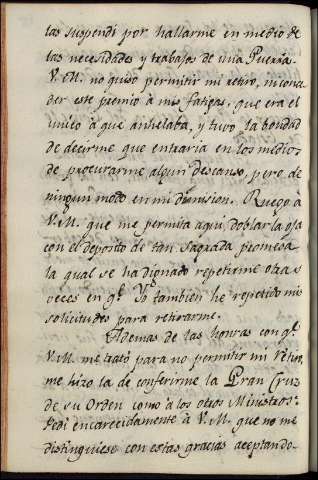 las suspendi por hallarme en medio de
las necesidades y trabajos de una Guerra.
V. M. no quiso permitir mi retiro, ni conce
der este premio à mis fatigas, que era el
unico à que anhelaba, y tuvo la bondad
de decirme que entraria en los medios
de procurarme algun descanso, pero de
ningun modo en mi dimision. Ruego à
V. M. que me permita aqui, doblar la oja
con el deposito de tan Sagrada promesa
la qual se ha dignado repetirme otras
veces en qe. Yo tambien he repetido mis
solicitudes para retirarme.
Ademas de las honras con qe.
V. M. me trató para no permitir mi retiro,
me hizo la de conferirme la Gran Cruz
de su Orden como à los otros Ministros:
Pedi encarecidamente à V. M. que no me
distinguiese con estas gracias aceptando-